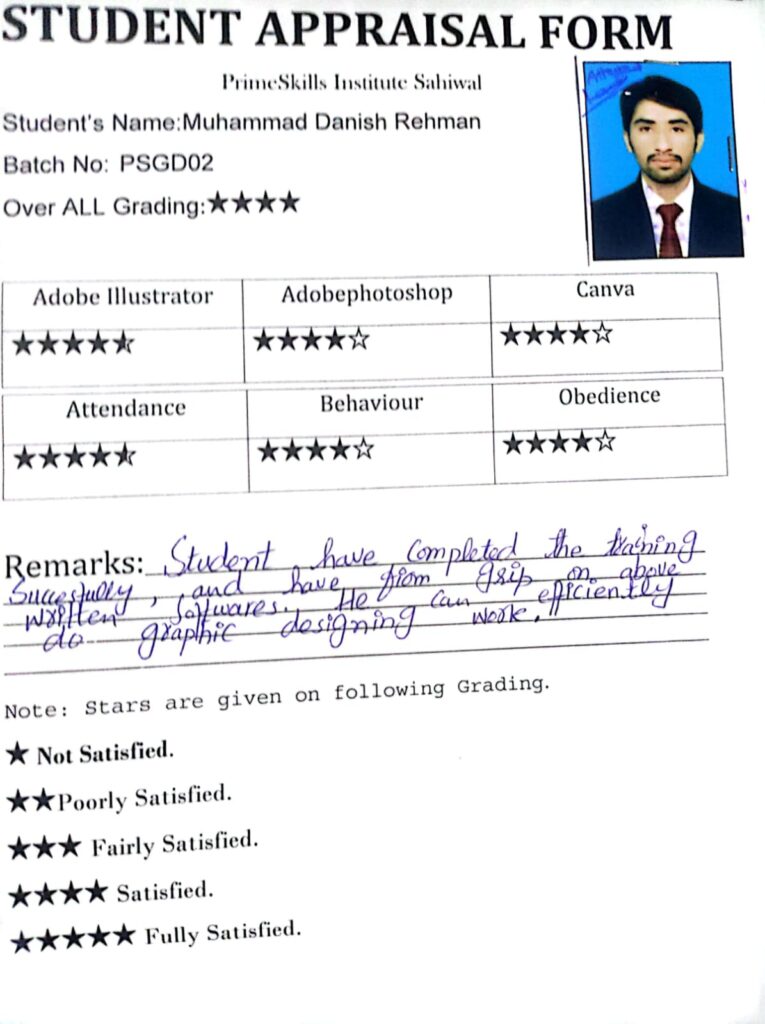 STUDENT APPRAISAL FORM
PrimeSkills Institute Sahiwal
Student's Name:Muhammad Danish Rehman
Batch No: PSGD02
Over ALL Grading:★★★★
Adobe Illustrator Adobephotoshop Canva
★★★★⯪ ★★★★☆ ★★★★☆
Attendance Behaviour Obedience
★★★★⯪ ★★★★☆ ★★★★☆
Remarks: Student have completed the training
Succesfully, and have firom grip on above
written softwares. He can efficiently
do graphic designing work.
Note: Stars are given on following Grading.
★ Not Satisfied.
★★Poorly Satisfied.
★★★ Fairly Satisfied.
★★★★ Satisfied.
★★★★★ Fully Satisfied.